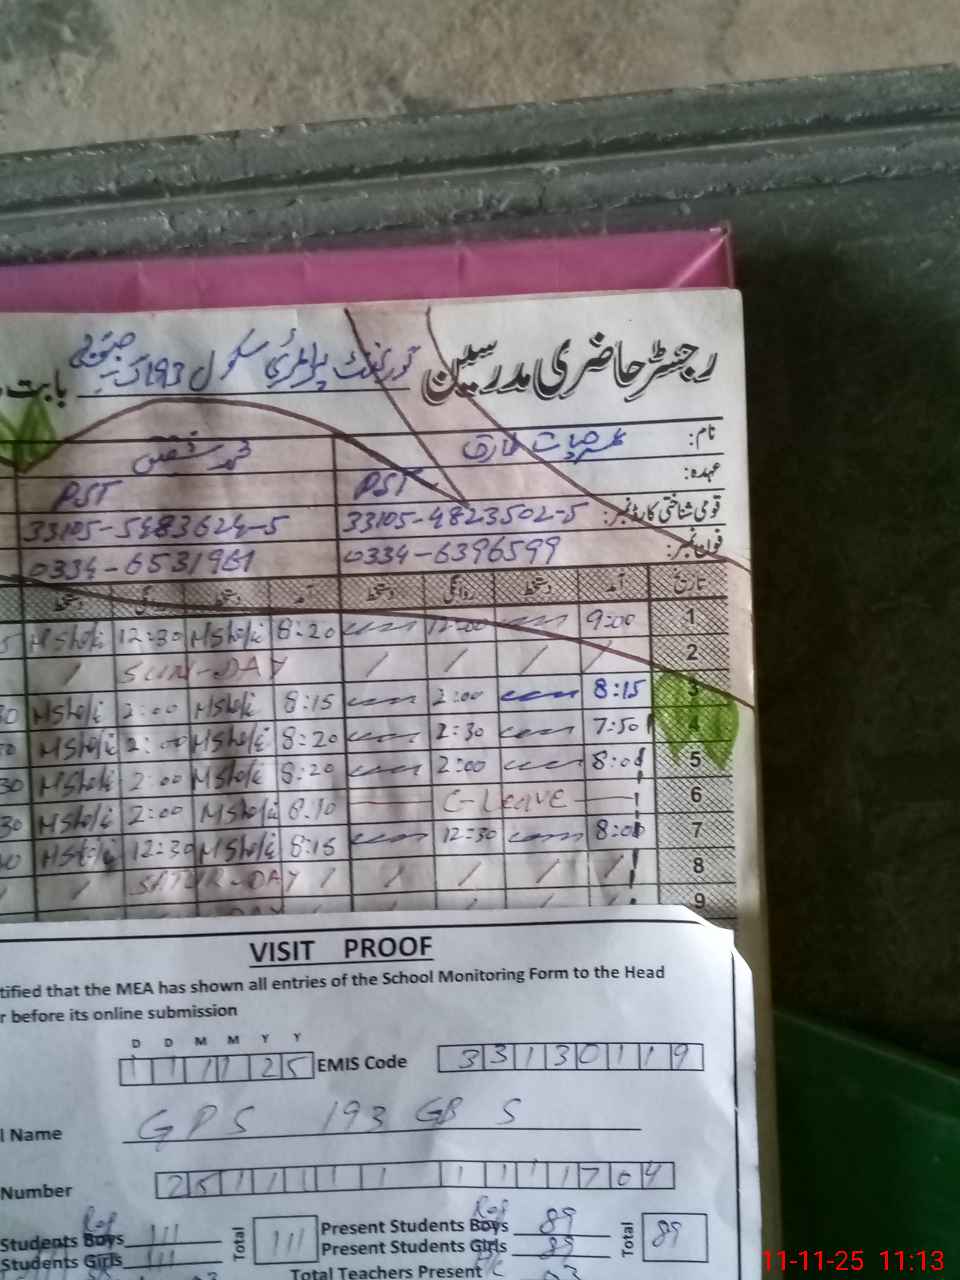 رجسٹر حاضری مدرسین گورنمنٹ پرائمری سکول 193 گ ب جنوبی بابت
نام: عمر حیات طارق محمد شفیق
عہدہ: PST PST
قومی شناختی کارڈ نمبر: 33105-4823502-5 33105-5483624-5
فون نمبر: 0334-6396599 0334-6531961
تاریخ آمد دستخط روانگی دستخط آمد دستخط روانگی دستخط
1 9:00 12:00 8:20 MShafi 12:30 MShafi
2 / / / / SUN-DAY /
3 8:15 2:00 8:15 MShafi 2:00 MShafi
4 7:50 2:30 8:20 MShafi 2:00 MShafi
5 8:00 2:00 8:20 MShafi 2:00 MShafi
6 C-Leave 8:10 MShafi 2:00 MShafi
7 8:00 12:30 8:15 MShafi 12:30 MShafi
8 / / / / / SATUR-DAY /
9 DAY
VISIT PROOF
tified that the MEA has shown all entries of the School Monitoring Form to the Head
r before its online submission
D D M M Y Y
111125 EMIS Code 33130119
l Name GPS 193 GB S
Number 25111111111704
Students Boys 111 Total 111 Present Students Boys 89 Total 89
Students Girls 111 Present Students Girls 89
Total Teachers Present 03
11-11-25 11:13